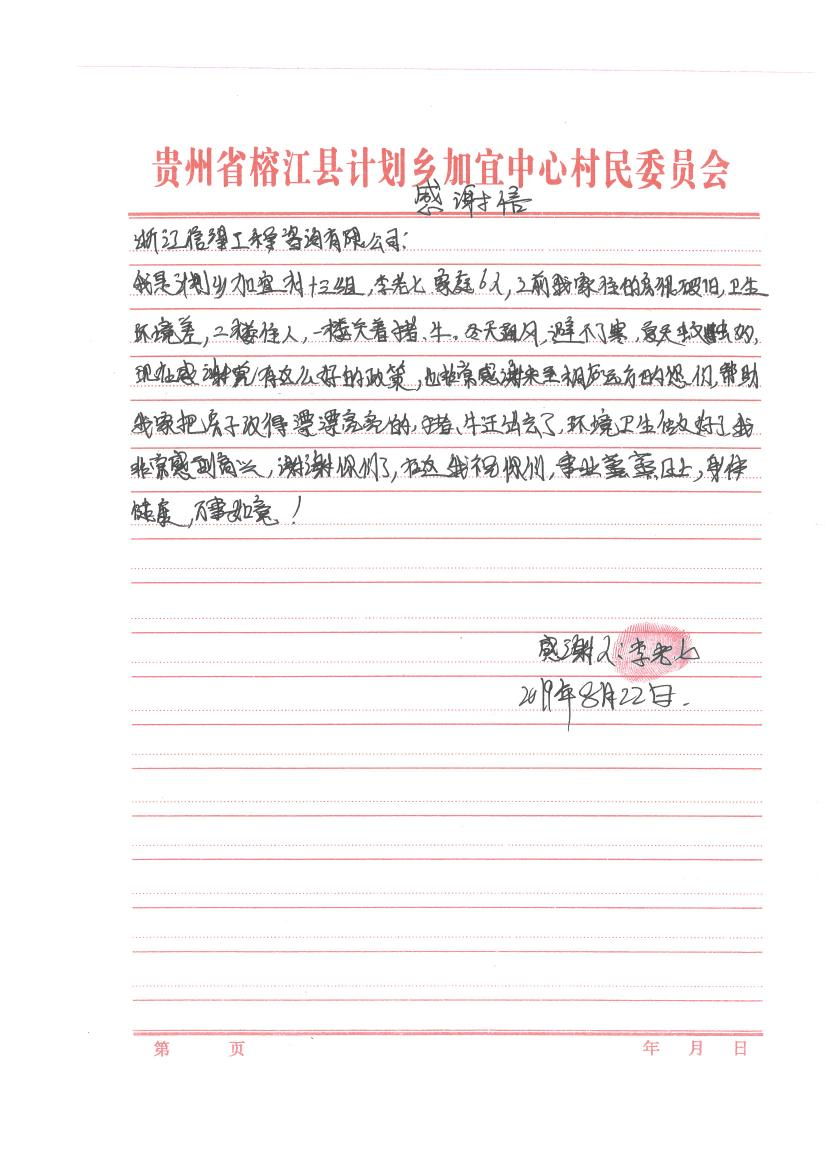 贵州省榕江县计划乡加宜中心村民委员会
感谢信
浙江信得工程咨询有限公司:
我是计划乡加宜村十三组,李老七 家庭6人,之前我家住的房很破旧,卫生
环境差,二楼住人,一楼关着猪、牛。冬天漏风,避不了寒,夏天
现在感谢党有这么好的政策,也非常感谢来至相好远方的您们,帮助
我家把房子改得漂漂亮亮的,猪、牛迁出去了,环境卫生做好了我
非常感到高兴,谢谢你们了,在这我祝你们,事业蒸蒸日上,身体
健康,万事如意!
感谢人:李老七
2019年8月22日.
第 页 年 月 日